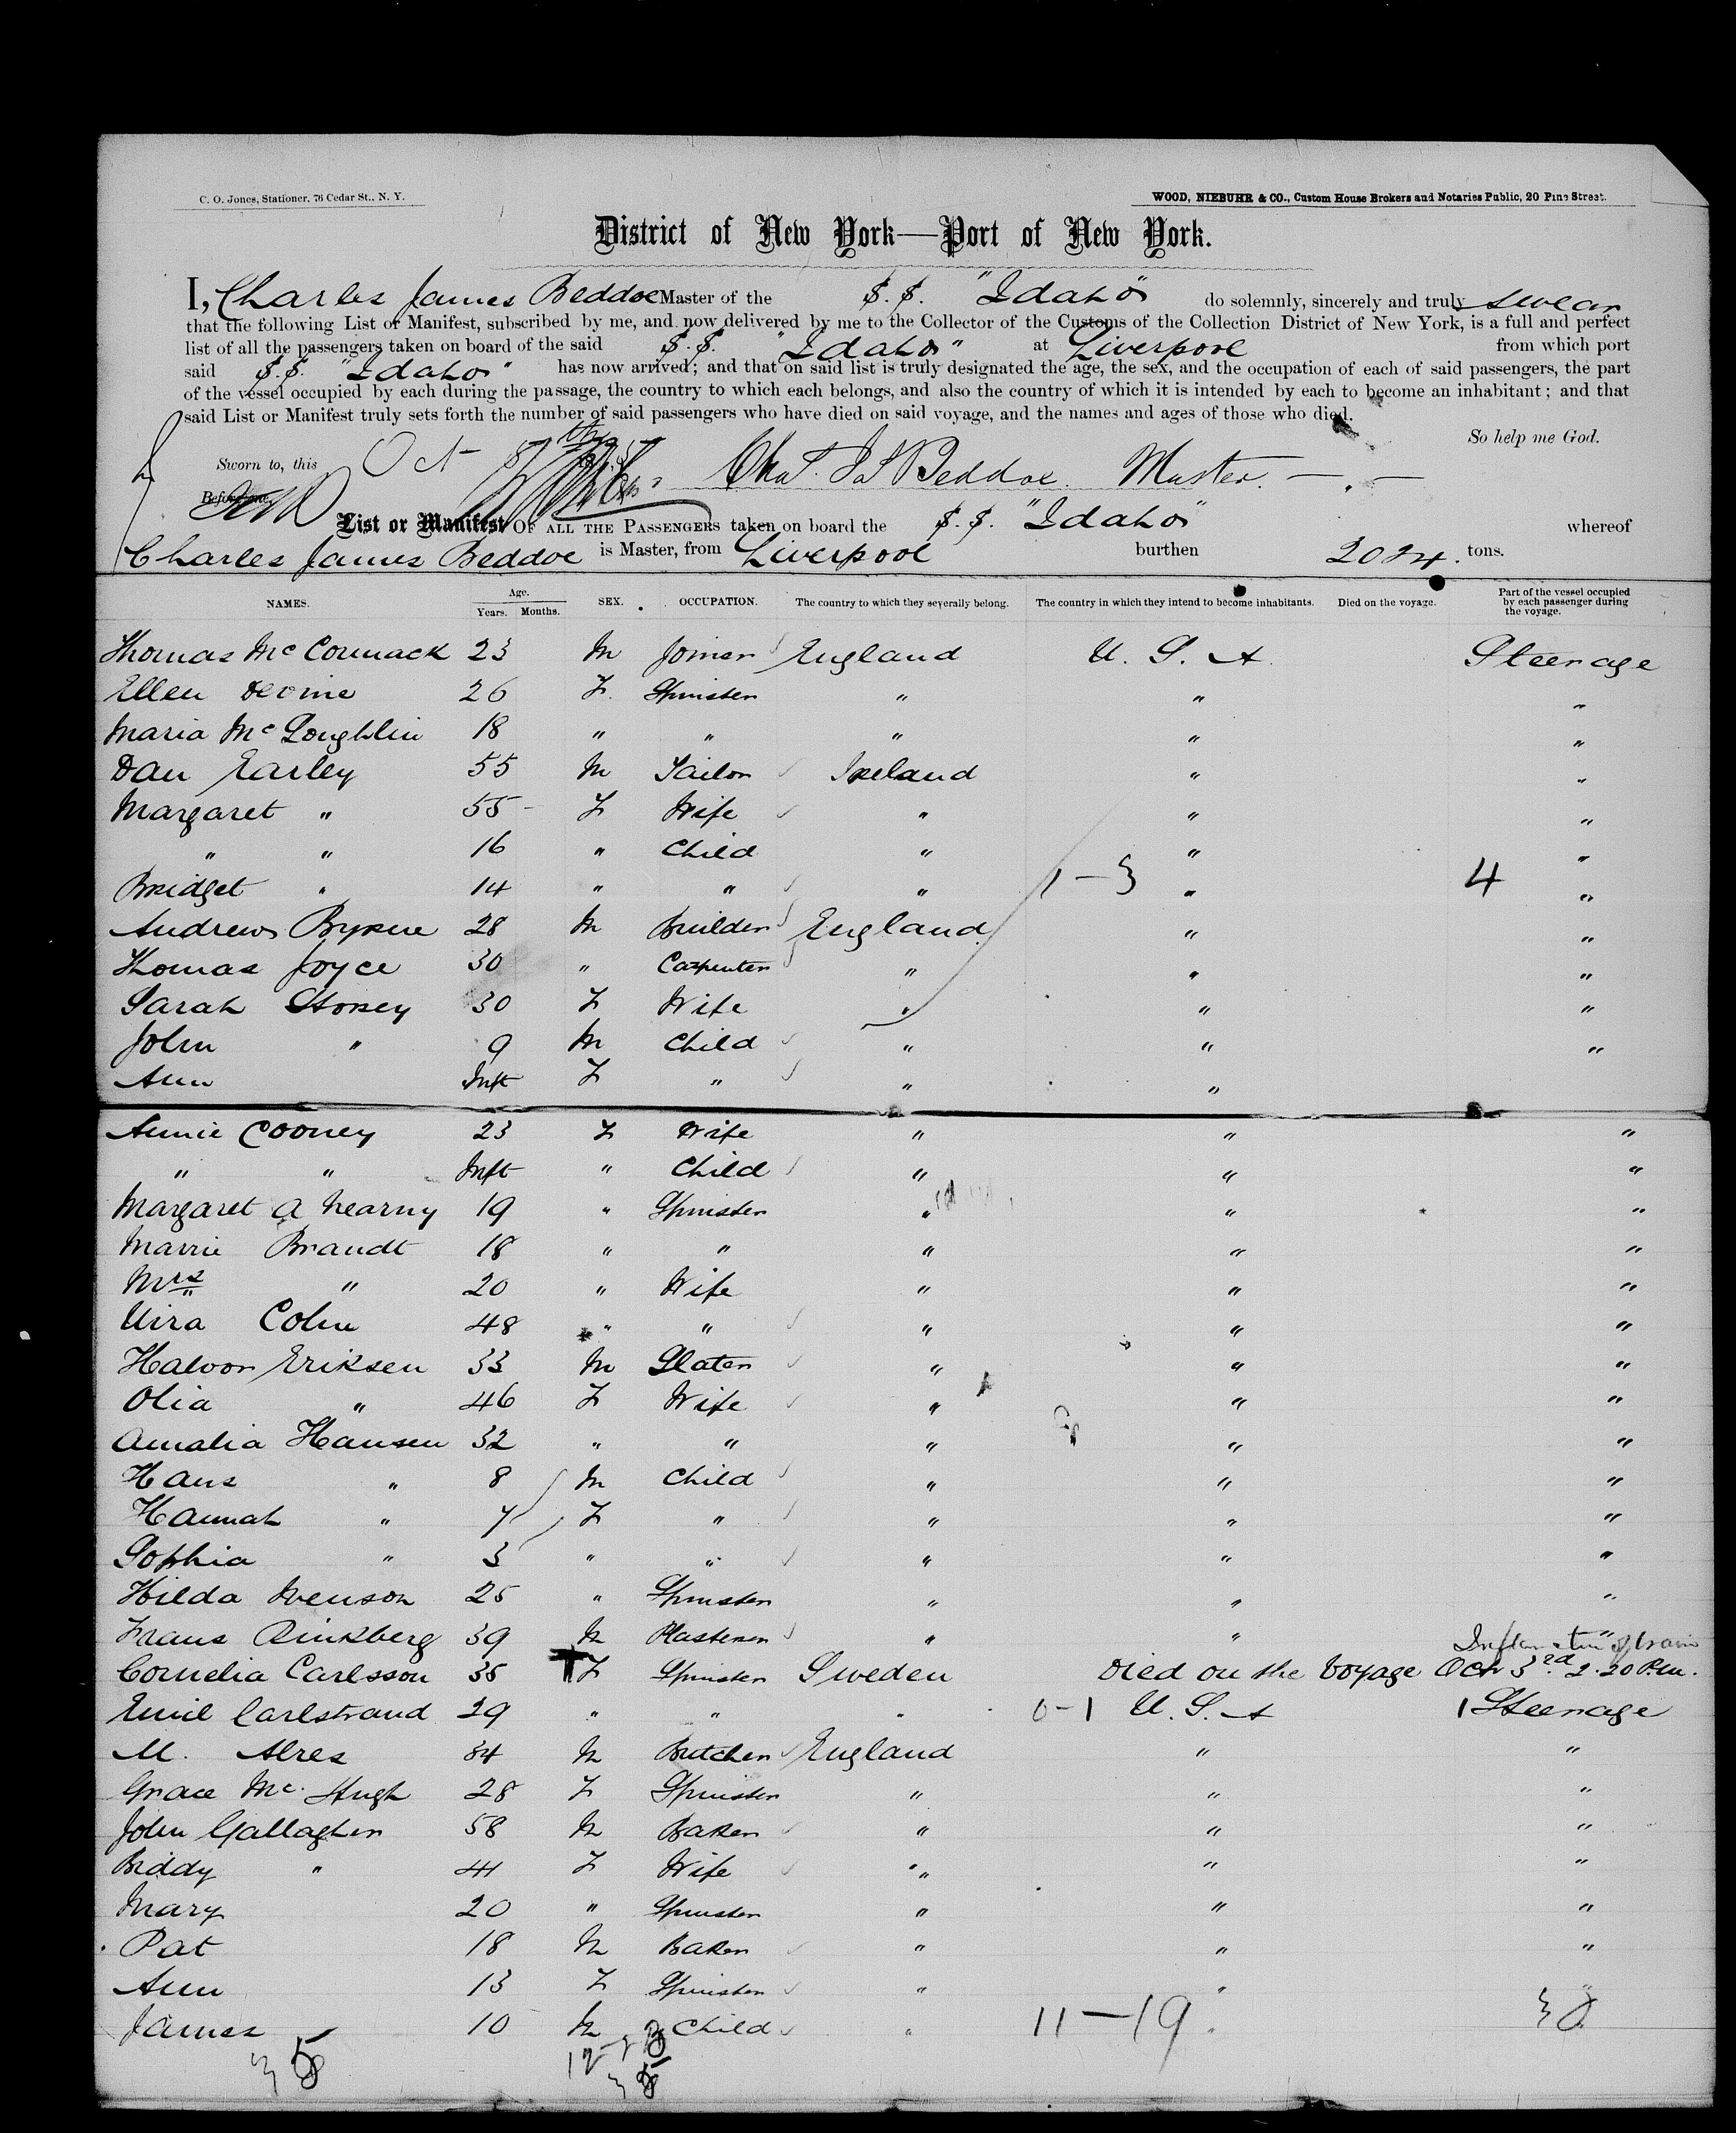 C. O. Jones, Stationer, 76 Cedar St., N. Y.
WOOD, NIEBUHR & CO., Custom House Brokers and Notaries Public, 20 Pine Street.
District of New York—Port of New York.
I, Charles James Beddoe Master of the S.S. "Idaho" do solemnly, sincerely and truly swear
that the following List or Manifest, subscribed by me, and now delivered by me to the Collector of the Customs of the Collection District of New York, is a full and perfect
list of all the passengers taken on board of the said S.S. "Idaho" at Liverpool from which port
said S.S. "Idaho" has now arrived; and that on said list is truly designated the age, the sex, and the occupation of each of said passengers, the part
of the vessel occupied by each during the passage, the country to which each belongs, and also the country of which it is intended by each to become an inhabitant; and that
said List or Manifest truly sets forth the number of said passengers who have died on said voyage, and the names and ages of those who died.
So help me God.
Sworn to, this Oct Chas. Js Beddoe. Master.
Before me,
List or Manifest OF ALL THE PASSENGERS taken on board the S.S. "Idaho" whereof
Charles James Beddoe is Master, from Liverpool burthen 2024. tons.
NAMES. Age. Years. Months. SEX. OCCUPATION. The country to which they severally belong. The country in which they intend to become inhabitants. Died on the voyage. Part of the vessel occupied by each passenger during the voyage.
Thomas McCormack 23 M Joiner England U. S. A Steerage
Ellen Devine 26 F. Spinster " " "
Maria McLoughlin 18 " " " " "
Dan Earley 55 M Tailor Ireland " "
Margaret " 55 F Wife " " "
" " 16 " Child " " "
Bridget " 14 " " " 1-3 " 4 "
Andrew Byrne 28 M Builder England " "
Thomas Joyce 30 " Carpenter " " "
Sarah Storey 30 F Wife " " "
John " 9 M Child " " "
Ann Inft F " " "
Annie Cooney 23 F Wife " " "
" " Inft " Child " " "
Margaret A Nearny 19 " Spinster " " "
Marrie Brandt 18 " " " " "
Mrs " 20 " Wife " " "
Colm 48 " " " " "
Halvor Eriksen 33 M Slater " " "
Olia " 46 F Wife " " "
Amalia Hansen 32 " " " " "
Hans " 8 M Child " " "
Hannah " 7 F " " " "
Sophia " 3 " " " " "
Hilda 25 " Spinster " " "
Frans Rinkberg 39 M Plasterer " " "
Inflamation of brain
Cornelia Carlsson 35 F Spinster Sweden Died on the Voyage Oct 3rd 2.20 P.M.
Emil Carlstrand 29 " " " 0-1 U. S. A 1 Steerage
M. Alres 34 M Butcher England " "
Grace Mc Hugh 28 F Spinster " " "
John Gallagher 58 M Baker " " "
Biddy " 41 F Wife " " "
Mary 20 " Spinster " " "
Pat 18 M Baker " " "
Ann 13 F Spinster " " "
James 10 M Child " 11-19 "